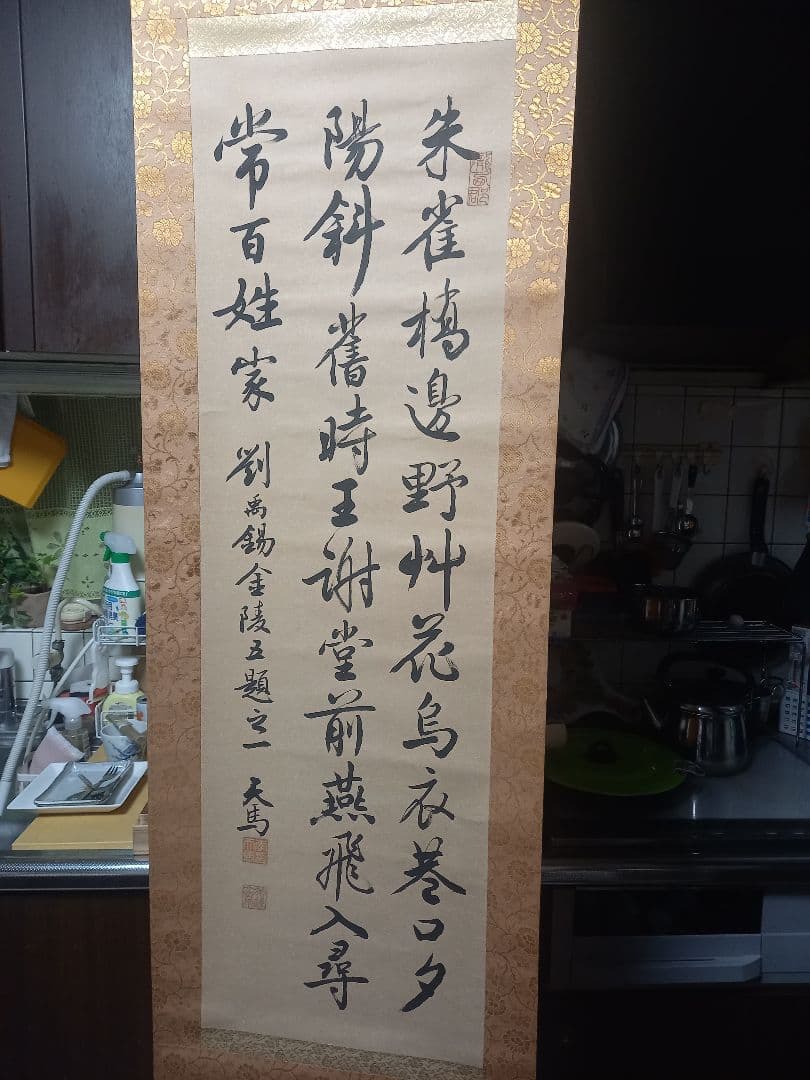 朱雀橋邊野艸花烏衣巷口夕
陽斜舊時王謝堂前燕飛入尋
常百姓家 劉禹錫金陵五題之一 天馬